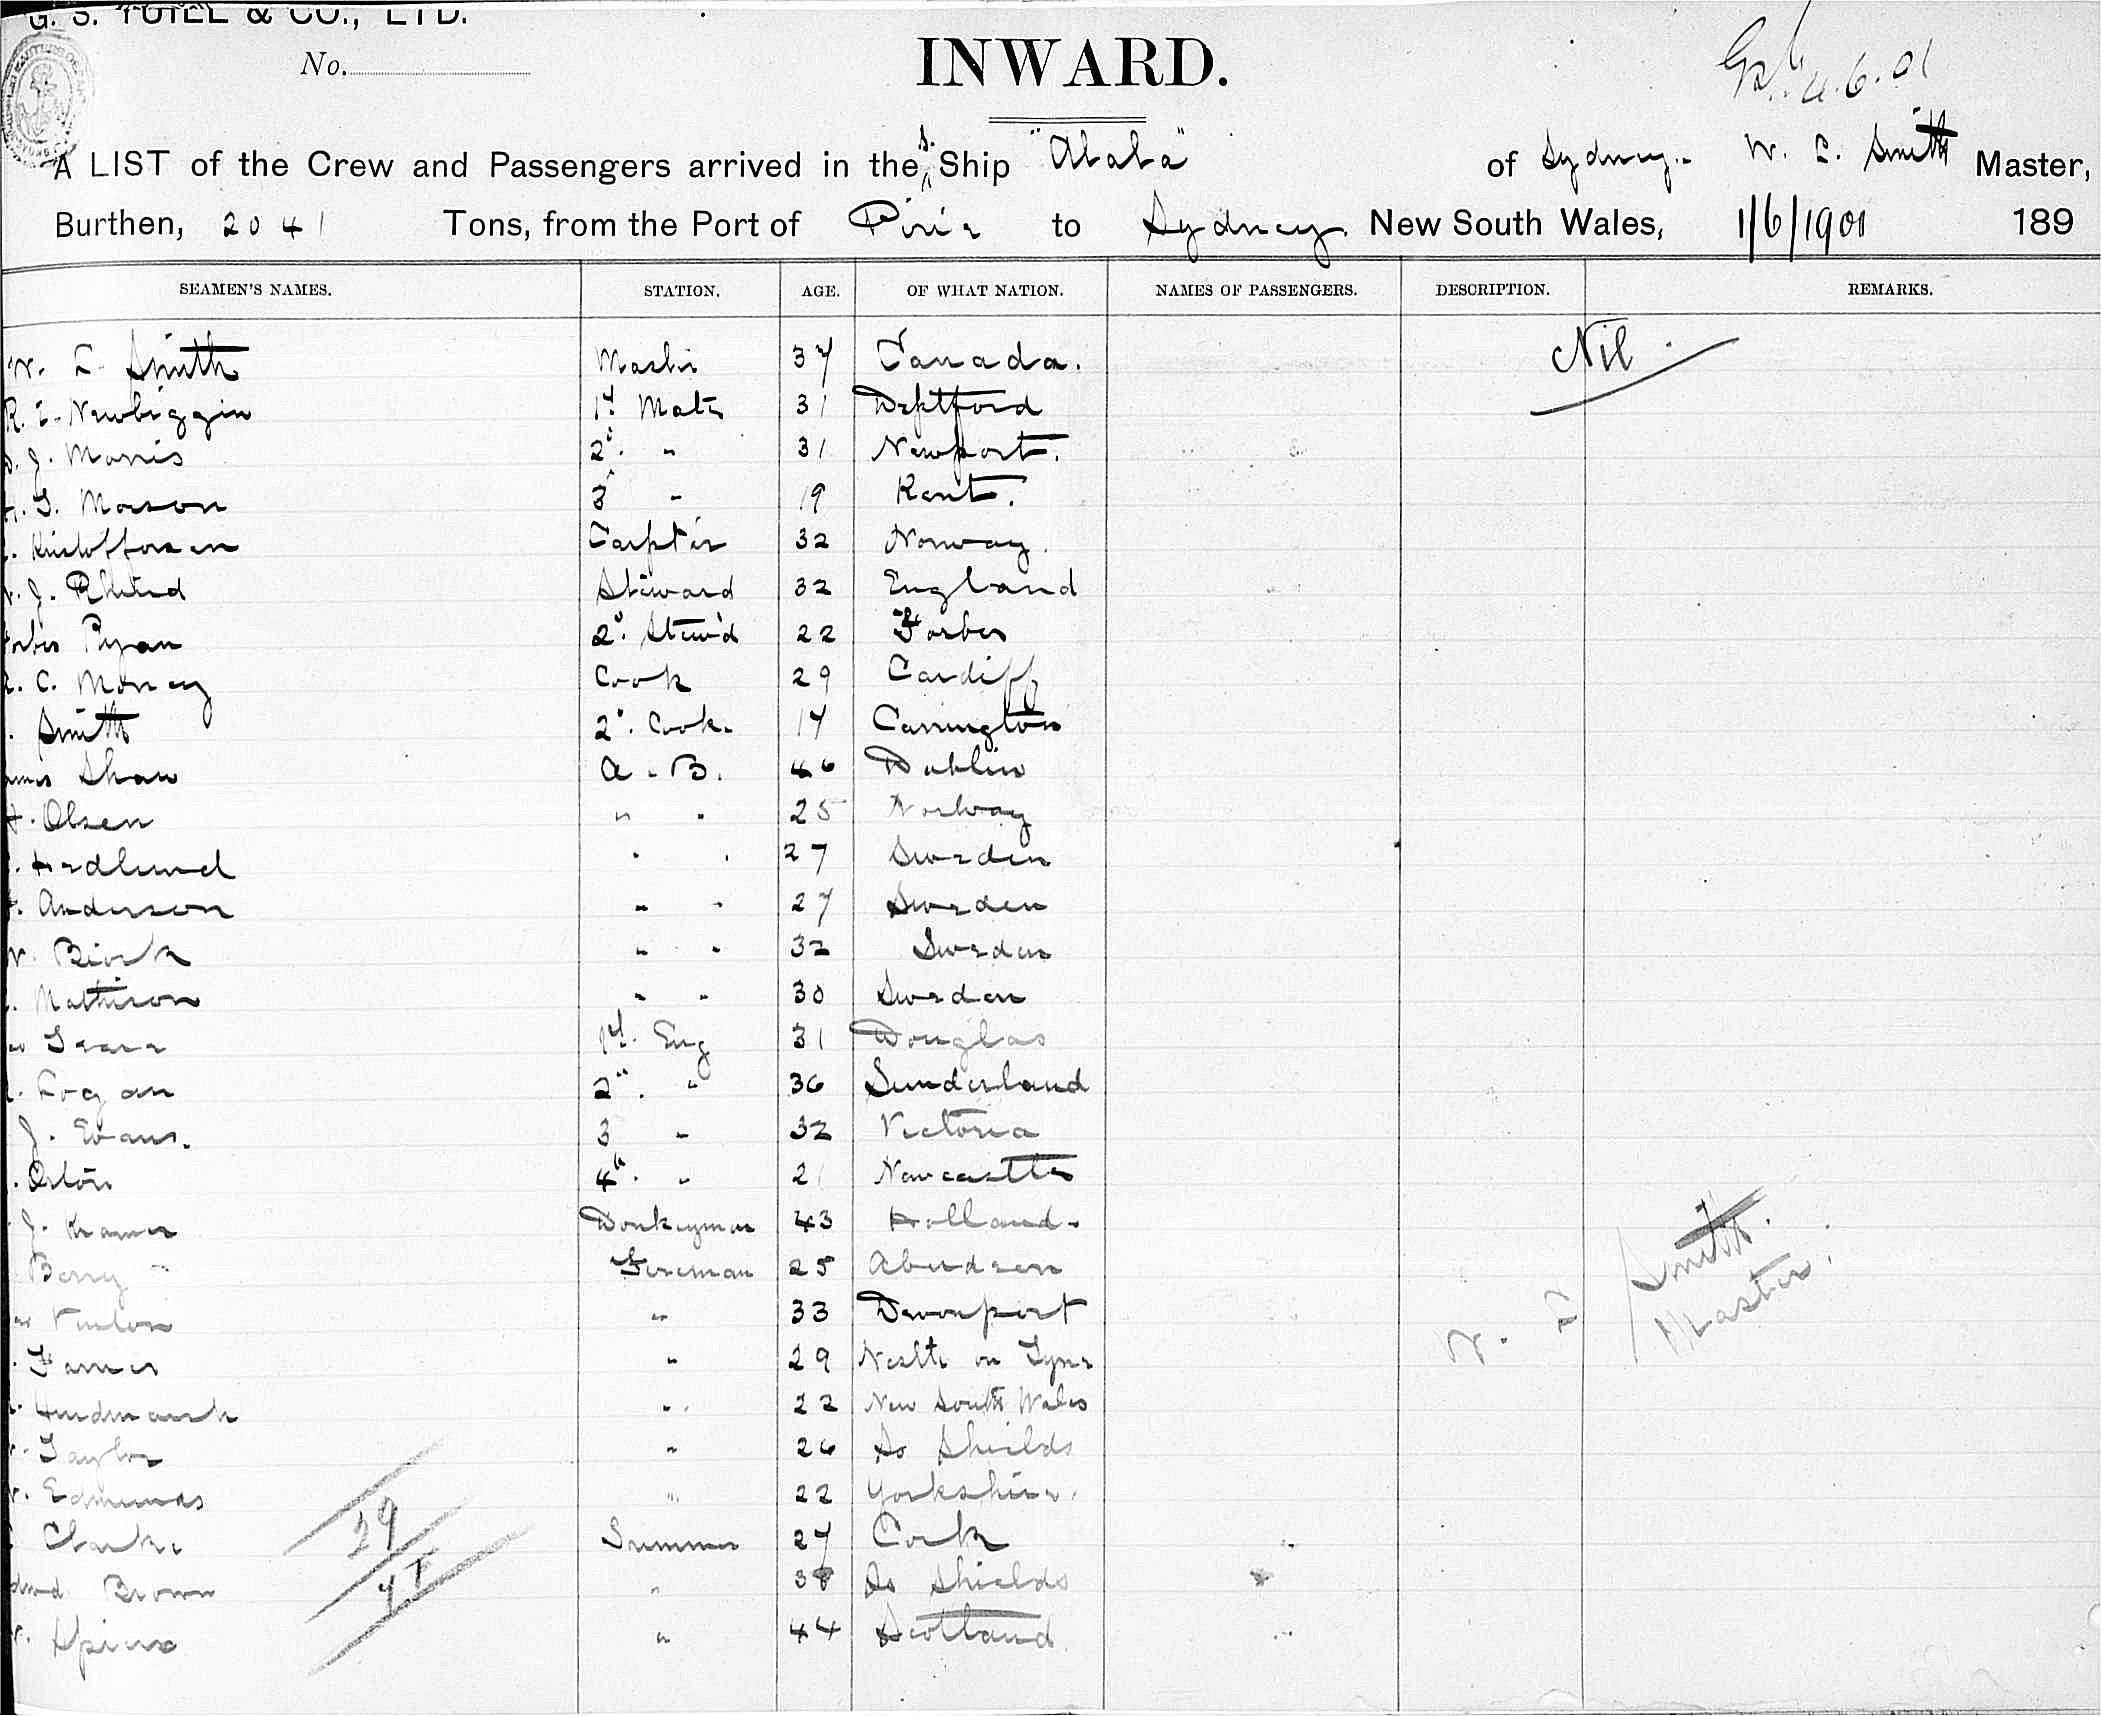 G. S. YUILL & CO., LTD.
No.
INWARD.
4.6.01
A LIST of the Crew and Passengers arrived in the S. Ship "Ababa" of Sydney. W. E. Smith Master,
Burthen, 2041 Tons, from the Port of Pirie to Sydney. New South Wales, 1/6/1901 189
SEAMEN'S NAMES. STATION. AGE. OF WHAT NATION. NAMES OF PASSENGERS. DESCRIPTION. REMARKS.
W. E. Smith Master 37 Canada. Nil.
R. E. Newbiggin 1st Mate 31 Deptford
J. Morris 2d. " 31 Newport.
Mason 3 " 19 Kent.
Kristoffersen Carpt'er 32 Norway.
J. Steward 32 England
Forbes Ryan 2d. Stew'd 22 Forbes
C. Money Cook 29 Cardiff
Smith 2d. Cook. 17 Carrington
James Shaw A.B. 46 Dublin
Olsen " " 25 Norway
Hedlund " " 27 Sweden
Anderson " " 27 Sweden
Biork " " 32 Sweden
Mathison " " 30 Sweden
1st. Eng 31 Douglas
2nd. " 36 Sunderland
J. Evans. 3 " 32 Victoria
Orton 4th. " 21 Newcastle
J. Kramer Donkeyman 43 Holland.
Berry Fireman 25 Aberdeen
" 33 Devonport
" 29 Ncstle on Tyne
Hindmarsh " 22 New South Wales
Taylor " 26 So Shields
Edmunds " 22 Yorkshire.
Clarke Trimmer 27 Cork
Edward Brown " 38 So Shields
Spiers " 44 Scotland.
29
W. E. Smith.
Master.